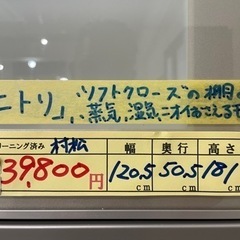 ニトリ」ソフトクローズの棚
蒸気、湿気ニオイおさえる
リーニング済み 村松 幅 奥行 高さ
39,800円 120.5cm 50.5cm 181cm